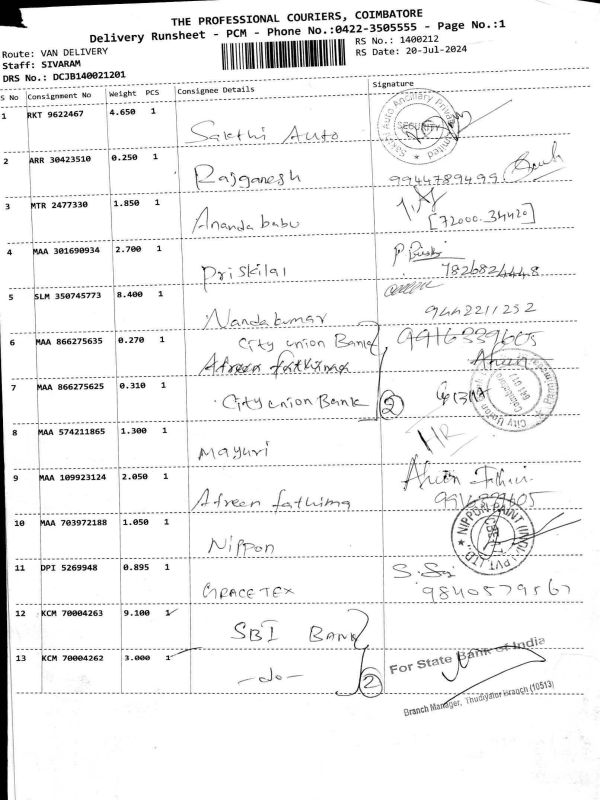 THE PROFESSIONAL COURIERS, COIMBATORE
Delivery Runsheet - PCM - Phone No.:0422-3505555 - Page No.:1
Route: VAN DELIVERY RS No.: 1400212
Staff: SIVARAM RS Date: 20-Jul-2024
DRS No.: DCJB140021201
S No Consignment No Weight PCS Consignee Details Signature
1 RKT 9622467 4.650 1 Sakthi Auto
Sakthi Auto Ancillary Private Limited
SECURITY
2 ARR 30423510 0.250 1 Rajganesh 9944789499
3 MTR 2477330 1.850 1 Ananda babu [72000.34420]
4 MAA 301690934 2.700 1 Priskilal 7826824448
5 SLM 350745773 8.400 1 Nandakumar 9442211252
6 MAA 866275635 0.270 1 City union Bank
Afreen fathima
7 MAA 866275625 0.310 1 City union Bank 2
8 MAA 574211865 1.300 1 Mayuri
9 MAA 109923124 2.050 1 Afreen fathima
10 MAA 703972188 1.050 1 Nippon
NIPPON PAINT (INDIA) PVT LTD.,
11 DPI 5269948 0.895 1 GRACETEX 9840579567
12 KCM 70004263 9.100 1 SBI BANK
13 KCM 70004262 3.000 1 -do- 2
For State Bank of India
Branch Manager, Thudiyalur Branch (10513)